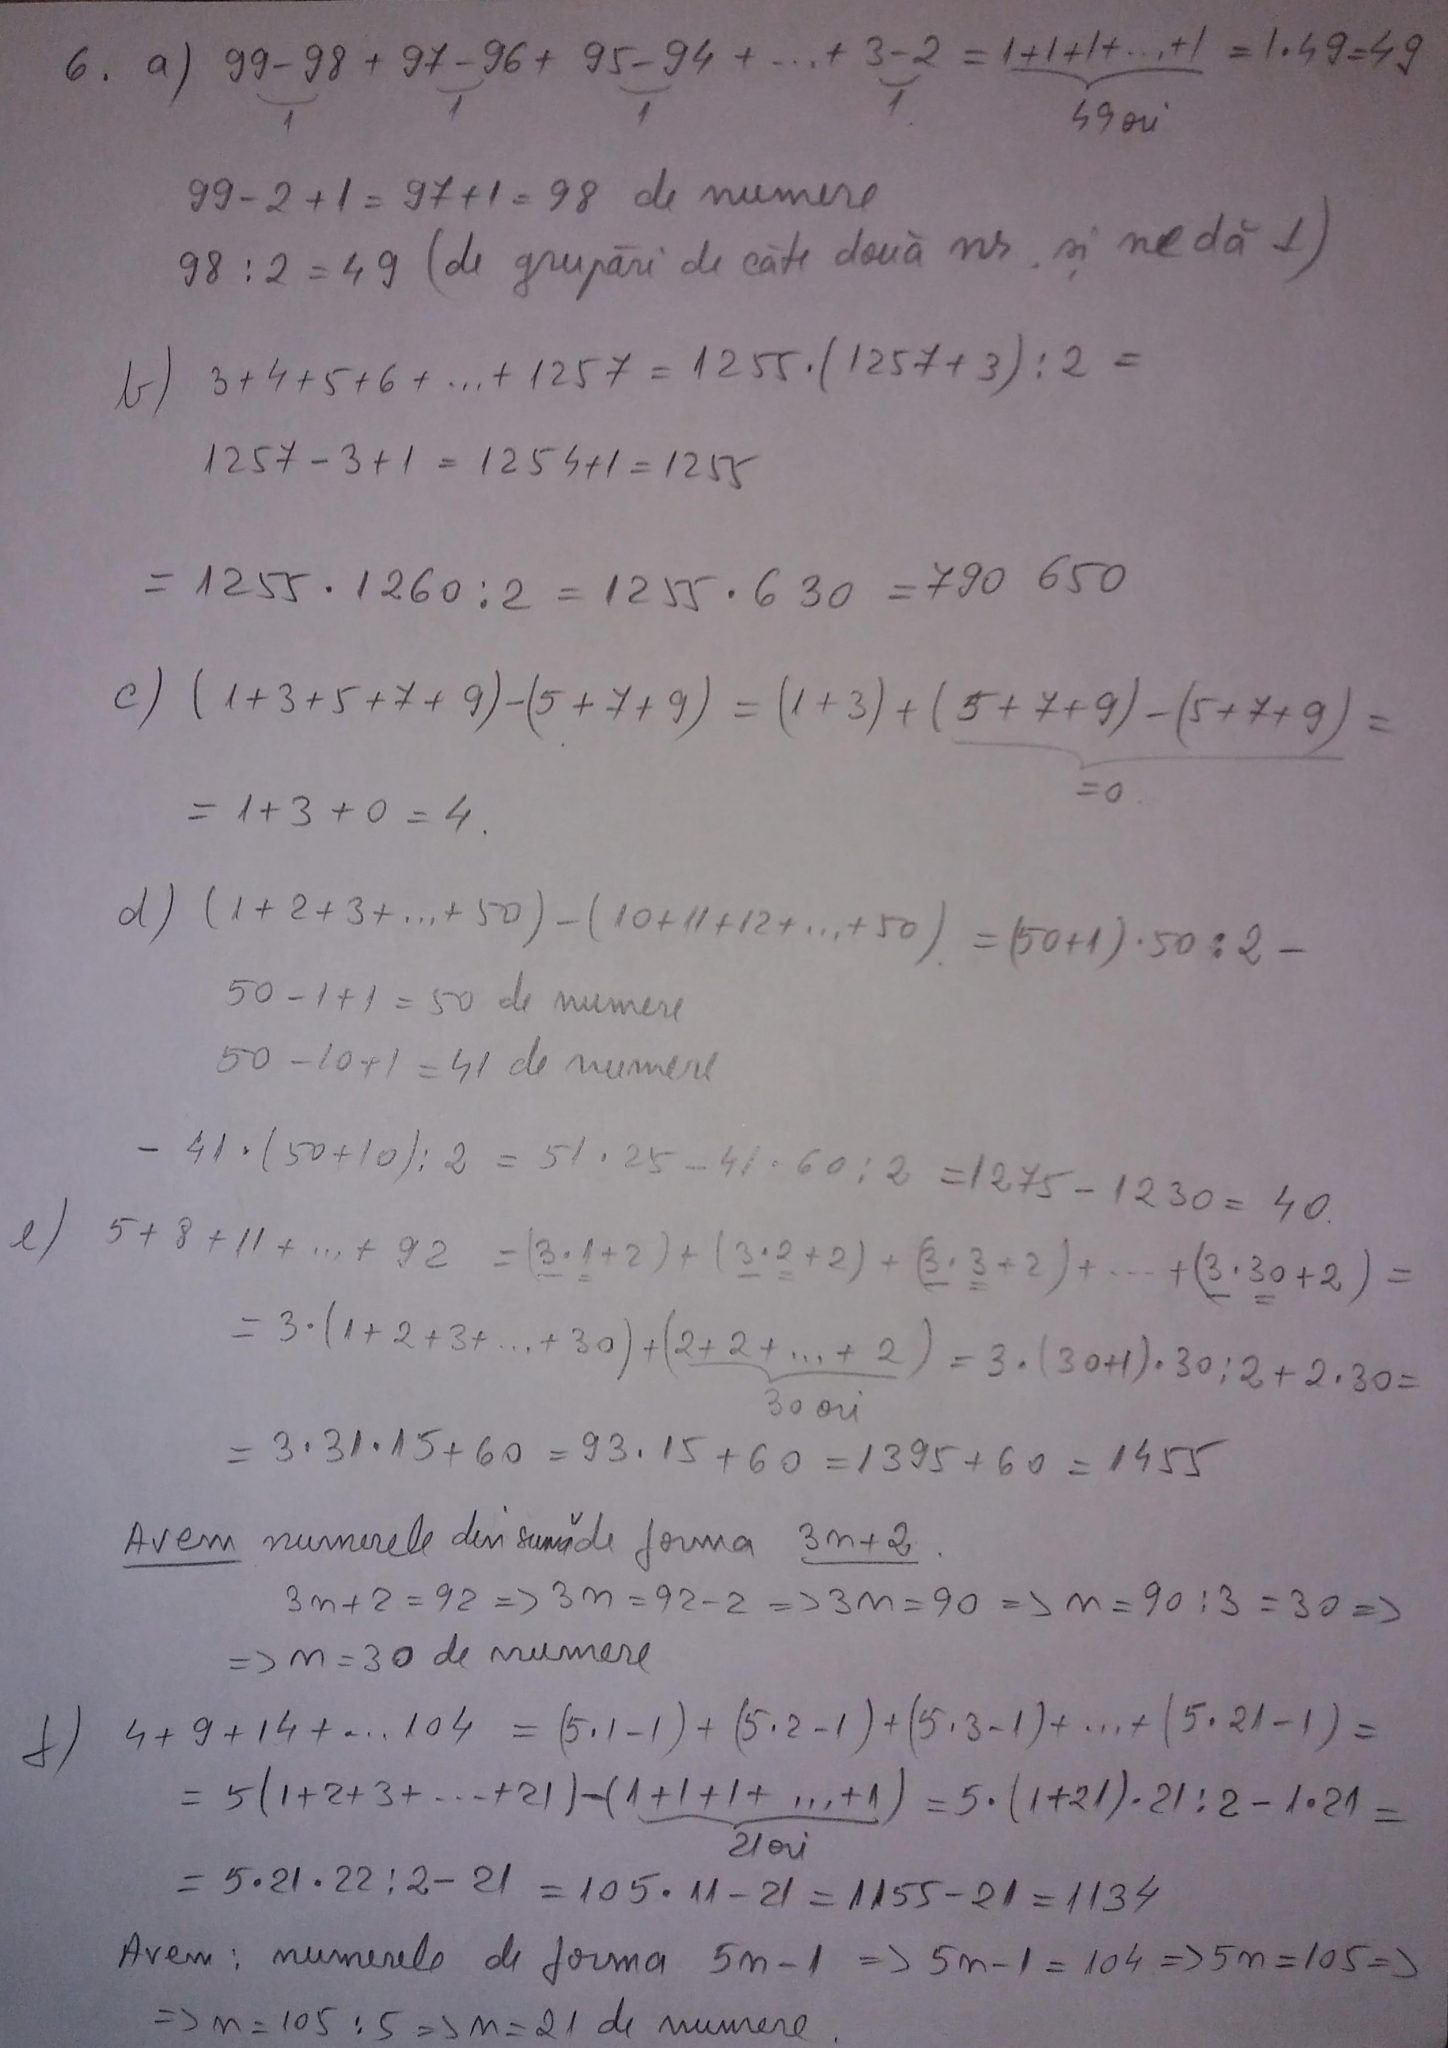 6. a) 99-98 + 97-96 + 95-94 + ... + 3-2 = 1+1+1+...+1 = 1·49=49
1 1 1 1 49 ori
99-2+1 = 97+1 = 98 de numere
98 : 2 = 49 (de grupări de câte două nr. și ne dă 1)
b) 3+4+5+6+...+1257 = 1255·(1257+3):2 =
1257-3+1 = 1254+1 = 1255
= 1255·1260:2 = 1255·630 = 790 650
c) (1+3+5+7+9)-(5+7+9) = (1+3)+(5+7+9)-(5+7+9) =
=0
= 1+3+0 = 4.
d) (1+2+3+...+50)-(10+11+12+...+50) = (50+1)·50:2 -
50-1+1 = 50 de numere
50-10+1 = 41 de numere
- 41·(50+10):2 = 51·25-41·60:2 = 1275-1230 = 40.
e) 5+8+11+...+92 = (3·1+2)+(3·2+2)+(3·3+2)+...+(3·30+2) =
= 3·(1+2+3+...+30)+(2+2+...+2) = 3·(30+1)·30:2+2·30 =
30 ori
= 3·31·15+60 = 93·15+60 = 1395+60 = 1455
Avem numerele din sumă de forma 3n+2.
3n+2=92 => 3n=92-2 => 3n=90 => n=90:3=30 =>
=> n=30 de numere
f) 4+9+14+...104 = (5·1-1)+(5·2-1)+(5·3-1)+...+(5·21-1) =
= 5(1+2+3+...+21)-(1+1+1+...+1) = 5·(1+21)·21:2-1·21 =
21 ori
= 5·21·22:2-21 = 105·11-21 = 1155-21 = 1134
Avem: numerele de forma 5n-1 => 5n-1=104 => 5n=105 =>
=> n=105:5 => n=21 de numere.